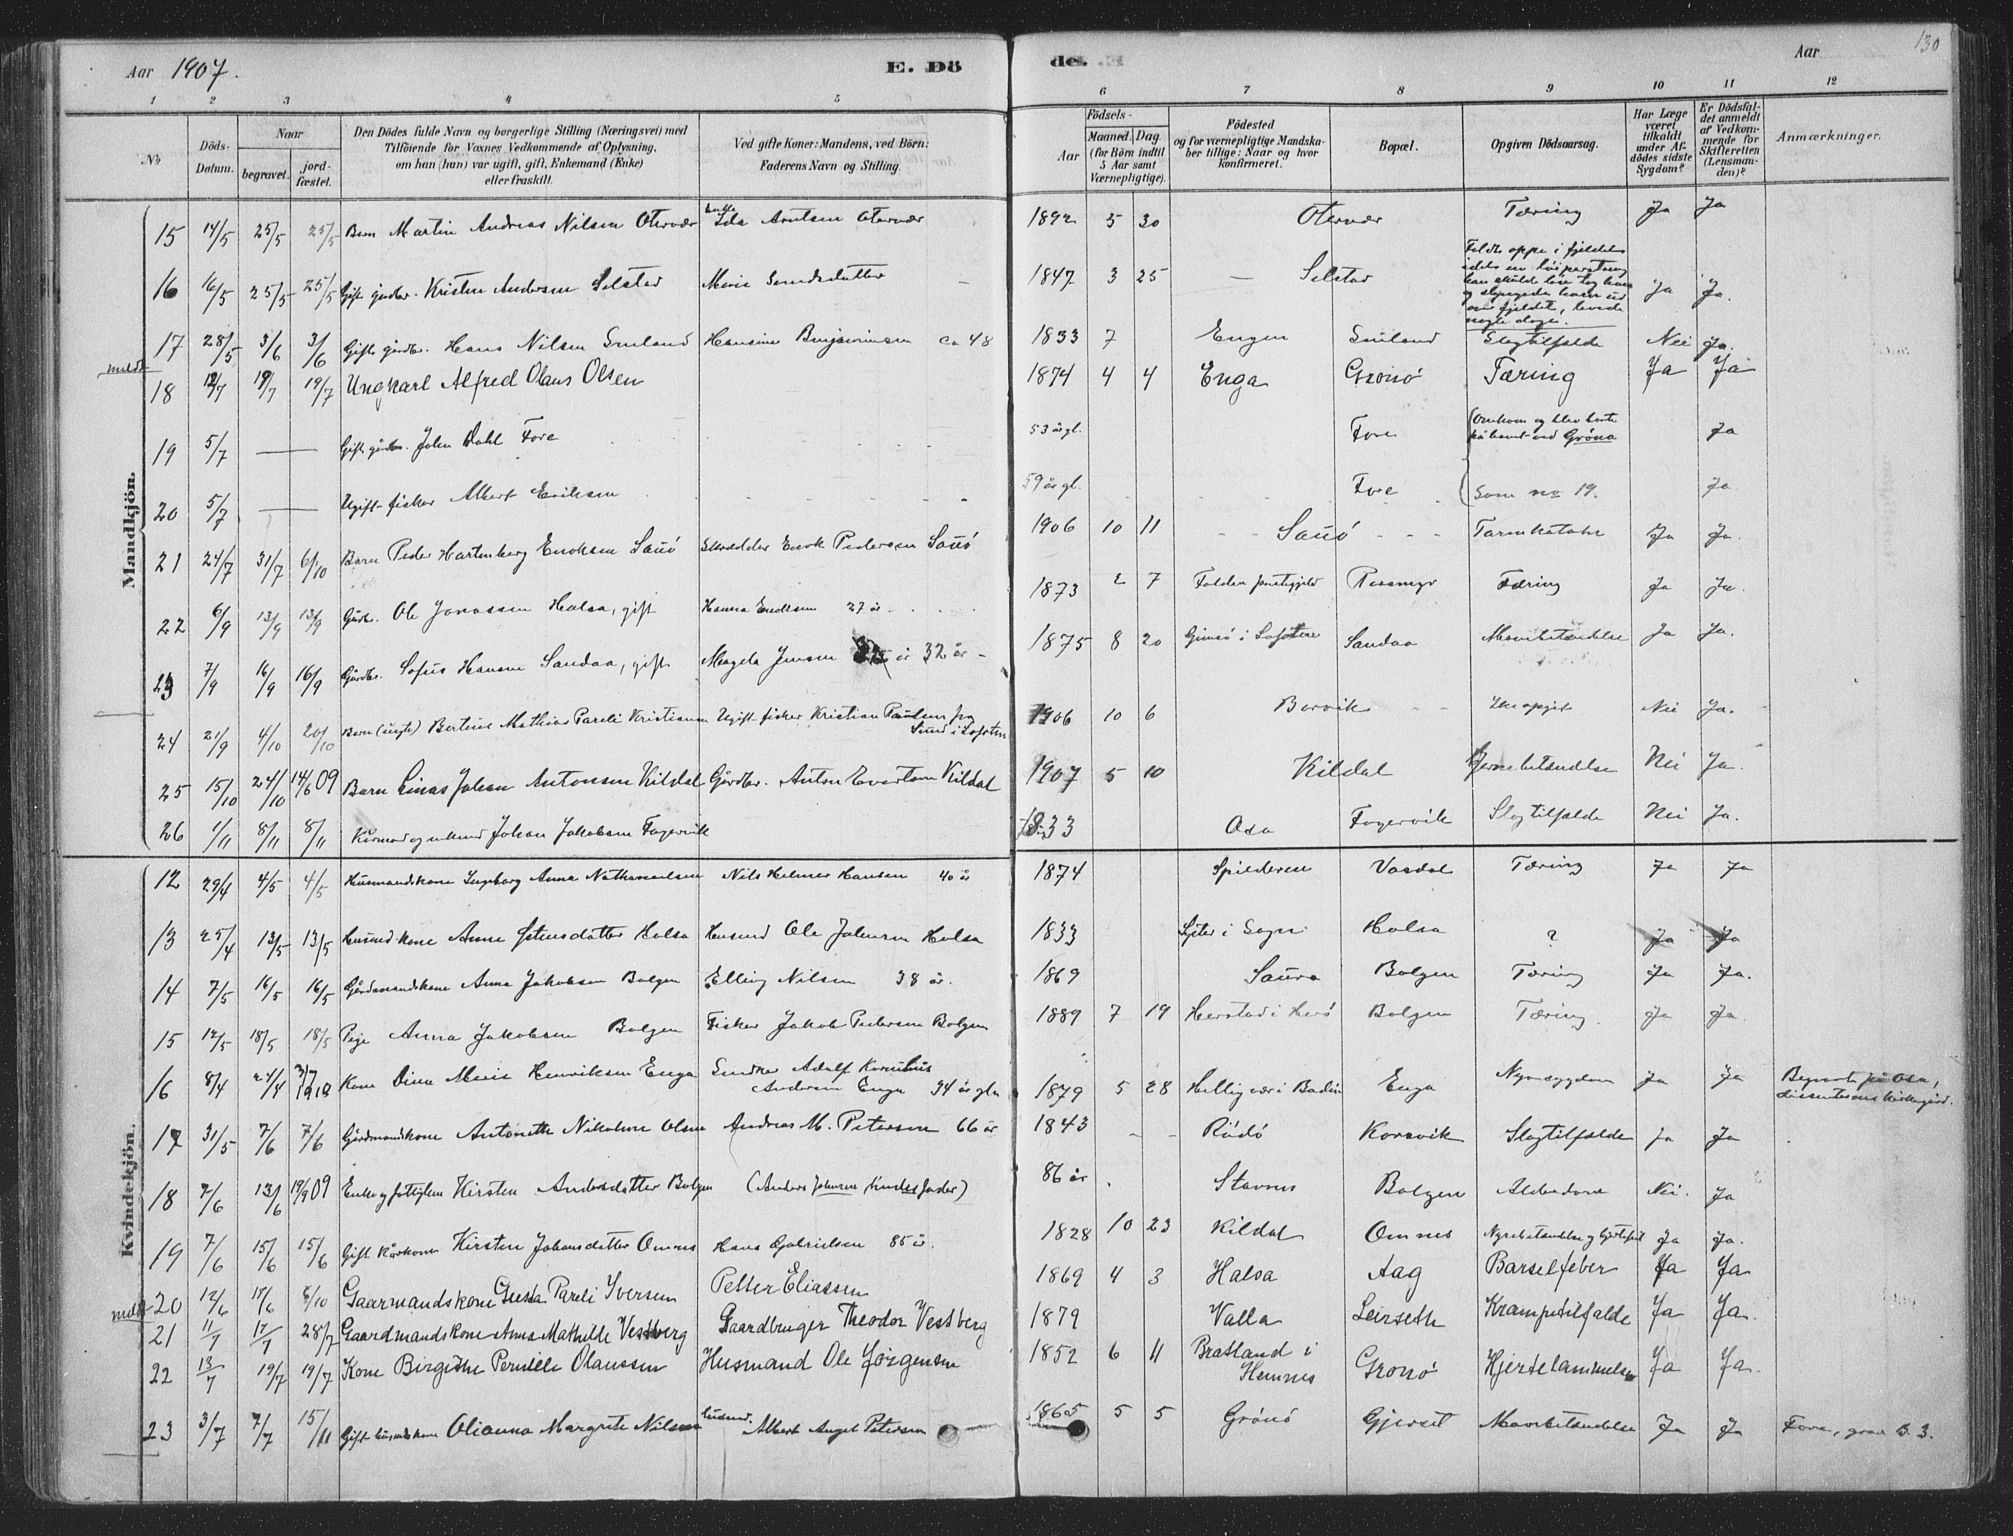 Aar 1907. E. Dö de. Aar 130
1 2 3 4 5 6 7 8 9 10 11 12
No Döds-Datum. Naar begravet. jordfæstet. Den Dödes fulde Navn og borgerlige Stilling (Næringsvei) med Tilföiende for Voxnes Vedkommende af Oplysning, om han (hun) var ugift, gift, Enkemand (Enke) eller fraskilt. Ved gifte Koner: Mandens, ved Börn: Faderens Navn og Stilling. Födsels- Aar Maaned. Dag. (for Börn indtil 5 Aar samt Værnepligtige). Födested og for værnepligtige Mandskaber tillige: Naar og hvor konfirmeret. Bopæl. Opgiven Dödsaarsag. Har Læge været tilkaldt under Afdödes sidste Sygdom? Er Dödsfaldet anmeldt af Vedkommende for Skifteretten (Lensmanden)? Anmærkninger.
Mandkjön.
15 14/5 25/5 25/5 Barn Martin Andreas Nilsen Otervær Arntsen Otervær 1892 5 30 Otervær Tæring Ja Ja
16 16/5 25/5 25/5 Gift gårdbr. Kristen Andersen Selstad Merie 1847 3 25 — Selstad Faldt oppe i fjeldet Ja Ja.
17 28/5 3/6 3/6 Gift gårdbr. Hans Nilsen Hansine Benjaminsen ca 48 1833 7 Engen Slagtilfælde Nei Ja.
meldt
18 12/7 19/7 19/7 Ungkarl Alfred Olaus Olsen 1874 4 4 Enga Gronö Tæring Ja Ja
19 5/7 — Gift gårdbr. John Dahl Fore 53 år gl. Fore Omkom og blev borte på havet ved Gröna Ja
20 5/7 — Ugift fisker Albert Eriksen 59 år gl. Fore Som no 19. Ja
21 24/7 31/7 6/10 Barn Peder Hartenberg Enoksen Sauö Skrædder Enok Pedersen Sauö 1906 10 11 Sauö Tarmkatahr Ja Ja.
22 6/9 13/9 13/9 Gårdbr. Ole Jonassen Halsa, gift Hanna 27 år 1873 2 7 Folden præstegjeld Tæring Ja Ja.
23 7/9 16/9 16/9 Gårdbr. Sofus Hansen Sandaa, gift Magda Jensen 32 år 1875 8 20 Gimsö i Lofoten Sandaa Mavebetændelse Ja Ja.
24 21/9 4/10 20/10 Barn (uægte) Bertinus Mathias Pareli Kristiansen Ugift fisker Kristian Paulsen fra Sund i Lofoten 1906 10 6 Borvik Ikke opgit Nei Ja.
25 15/10 24/10 14/6 09 Barn Johan Antonsen Kildal Gårdbr. Anton Evertsen Kildal 1907 5 10 Kildal Hjernebetændelse Nei Ja.
26 1/11 8/11 8/11 Kårmand og enkemand Johan Jakobsen Fagervik 1833 Osa Fagervik Slagtilfælde Nei Ja.
Kvindekjön.
12 29/4 4/5 4/5 Husmandskone Ingeborg Anna Nathanaelsen Nils Helmer Hansen 40 år 1874 Spilderen Vasdal Tæring Ja Ja
13 25/4 13/5 13/5 Husmdskone Anne Halsa Husmd Ole Johnsen Halsa 1833 i Sogn Halsa ? Ja Ja
14 7/5 16/5 16/5 Gårdmandskone Anna Jakobsen Bolgen Elling Nilsen 38 år. 1869 Saura Bolgen Tæring Ja Ja.
15 12/5 18/5 18/5 Pige Anna Jakobsen Bolgen Fisker Jakob Pedersen Bolgen 1889 7 19 Herstad i Herö Bolgen Tæring. Ja Ja.
16 8/4 24/4 3/7 1910 Kone Dina Merie Henriksen Enga Snedker Adolf Kornelius Andersen Enga 34 år gl. 1879 5 28 Helligvær i Bodin Enga Nyresygdom Ja Ja Begravet på Osa, dissenternes kirkegård.
17 31/5 7/6 7/6 Gårdmandskone Antonette Nikoline Olsen Andreas M. Petersen 66 år 1843 — — Rödö Korsvik Slagtilfælde Ja Ja
18 7/6 13/6 19/9 09 Enke og fattiglem Kirsten Andersdatter Bolgen (Anders Johnsen fader) 86 år Stavnes Bolgen Alderdom Nei. Ja
19 7/6 15/6 15/6 Gift kårkone Kirsten Johansdatter Omnes Hans Gabrielsen 85 år. 1828 10 23 Kildal Omnes Nyrebetændelse og hjertefeil Ja Ja.
20 12/6 18/6 6/10 Gaarmandskone Gusta Pareli Iversen Petter Eliassen 1869 4 3 Halsa Aag Barselfeber Ja Ja
meldt
21 11/7 17/7 28/7 Gaardmandskone Anna Mathilde Vestberg Gaardbruger Theodor Vestberg 1879 Valla Leirseth Krampetilfælde Ja Ja.
22 13/7 19/7 19/7 Kone Birgithe Pernille Olaussen Husmand Ole Jörgensen 1852 6 11 Bratland i Hemnes Gronö Hjertelammelse Ja Ja.
23 3/7 7/7 15/11 Gift husmdskone Olianna Margrete Nilsen husmd. Albert Angel Petersen 1865 5 5 Grönö Gjerset Mavebetændelse Ja Ja Fore, grav B. 3.